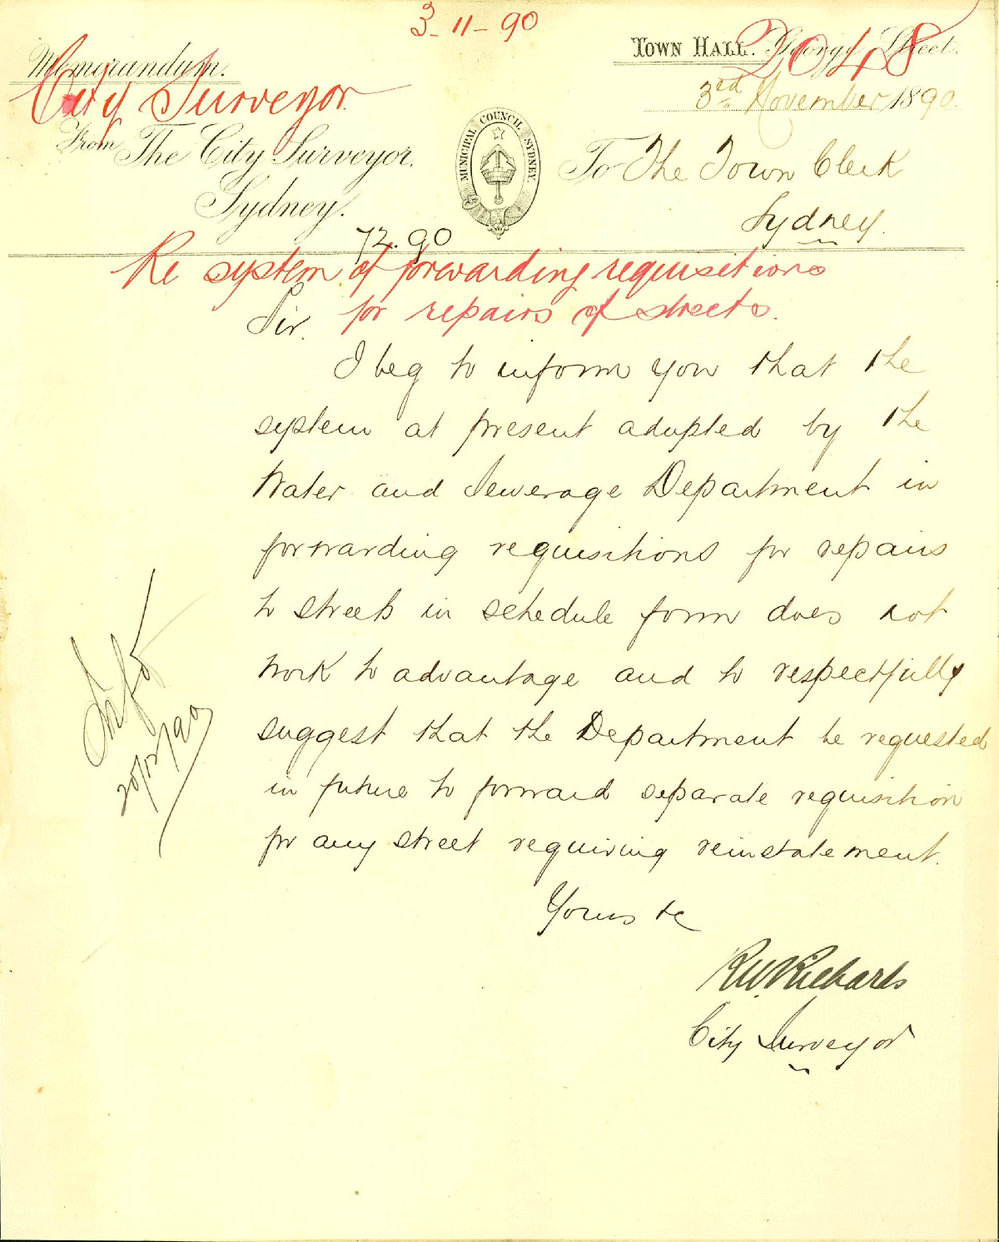 3-11-90
Town Hall. George Street.
2048
Memorandum.
City Surveyor
3rd November, 1890.
From The City Surveyor,
Sydney.
MUNICIPAL COUNCIL SYDNEY.
To The Town Clerk
Sydney.
72.90
Re system of forwarding requisitions
for repairs of streets.
Sir.
I beg to inform you that the
system at present adopted by the
Water and Sewerage Department in
forwarding requisitions for repairs
to streets in schedule form does not
work to advantage and to respectfully
suggest that the Department be requested
in future to forward separate requisition
for any street requiring reinstatement.
Yours &c
R W Richards
City Surveyor